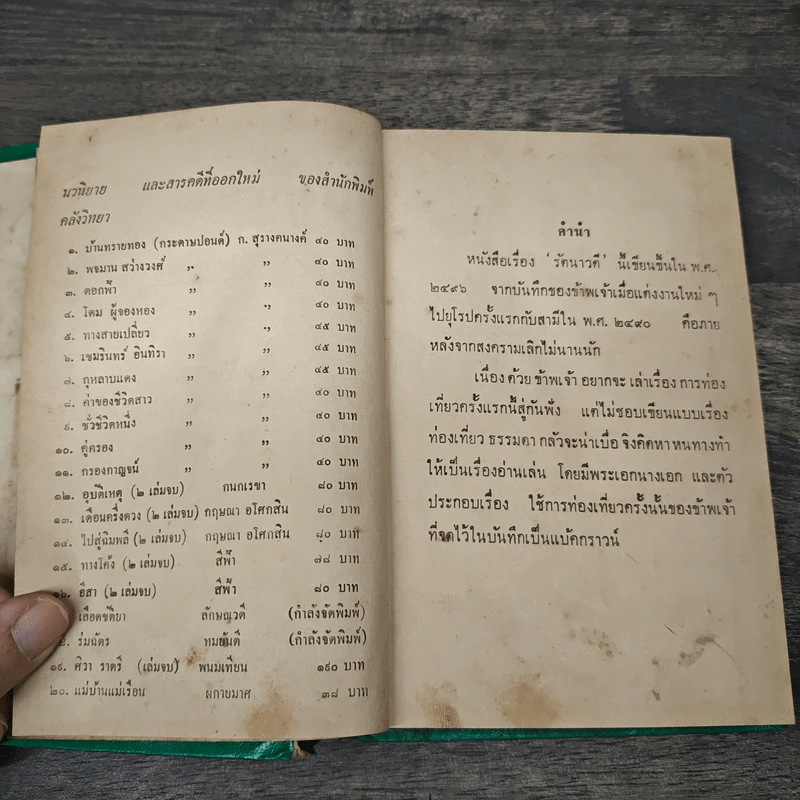 นวนิยาย และสารคดีที่ออกใหม่ ของสำนักพิมพ์
คลังวิทยา
๑. บ้านทรายทอง (กระดาษปอนด์) ก. สุรางคนางค์ ๔๐ บาท
๒. พจมาน สว่างวงศ์ ,, ,, ๔๐ บาท
๓. ดอกฟ้า ,, ,, ๔๐ บาท
๔. โดม ผู้จองหอง ,, ,, ๔๐ บาท
๕. ทางสายเปลี่ยว ,, ,, ๔๕ บาท
๖. เขมรินทร์ อินทิรา ,, ,, ๔๕ บาท
๗. กุหลาบแดง ,, ,, ๔๕ บาท
๘. ค่าของชีวิตสาว ,, ,, ๔๐ บาท
๙. ชั่วชีวิตหนึ่ง ,, ,, ๔๐ บาท
๑๐. คู่ครอง ,, ,, ๔๐ บาท
๑๑. กรองกาญจน์ ,, ,, ๔๐ บาท
๑๒. อุบัติเหตุ (๒ เล่มจบ) กนกเรขา ๘๐ บาท
๑๓. เดือนครึ่งดวง (๒ เล่มจบ) กฤษณา อโศกสิน ๘๐ บาท
๑๔. ไปสู่ฉิมพลี (๒ เล่มจบ) กฤษณา อโศกสิน ๘๐ บาท
๑๕. ทางโค้ง (๒ เล่มจบ) สีฟ้า ๗๘ บาท
๑๖. อีสา (๒ เล่มจบ) สีฟ้า ๘๐ บาท
เลือดขัติยา ลักษณวดี (กำลังจัดพิมพ์)
๘. ร่มฉัตร ทมยันตี (กำลังจัดพิมพ์)
๑๙. ศิวา ราตรี (เล่มจบ) พนมเทียน ๑๙๐ บาท
๒๐. แม่บ้านแม่เรือน ผกายมาศ ๓๘ บาท
คำนำ
หนังสือเรื่อง ‘รัตนาวดี’ นี้เขียนขึ้นใน พ.ศ.
๒๔๙๖ จากบันทึกของข้าพเจ้าเมื่อแต่งงานใหม่ ๆ
ไปยุโรปครั้งแรกกับสามีใน พ.ศ. ๒๔๙๐ คือภาย
หลังจากสงครามเลิกไม่นานนัก
เนื่อง ด้วย ข้าพเจ้า อยากจะ เล่าเรื่อง การท่อง
เที่ยวครั้งแรกนี้สู่กันฟัง แต่ไม่ชอบเขียนแบบเรื่อง
ท่องเที่ยว ธรรมดา กลัวจะน่าเบื่อ จึงคิดหา หนทางทำ
ให้เป็นเรื่องอ่านเล่น โดยมีพระเอกนางเอก และตัว
ประกอบเรื่อง ใช้การท่องเที่ยวครั้งนั้นของข้าพเจ้า
ที่จดไว้ในบันทึกเป็นแบ้คกราวน์